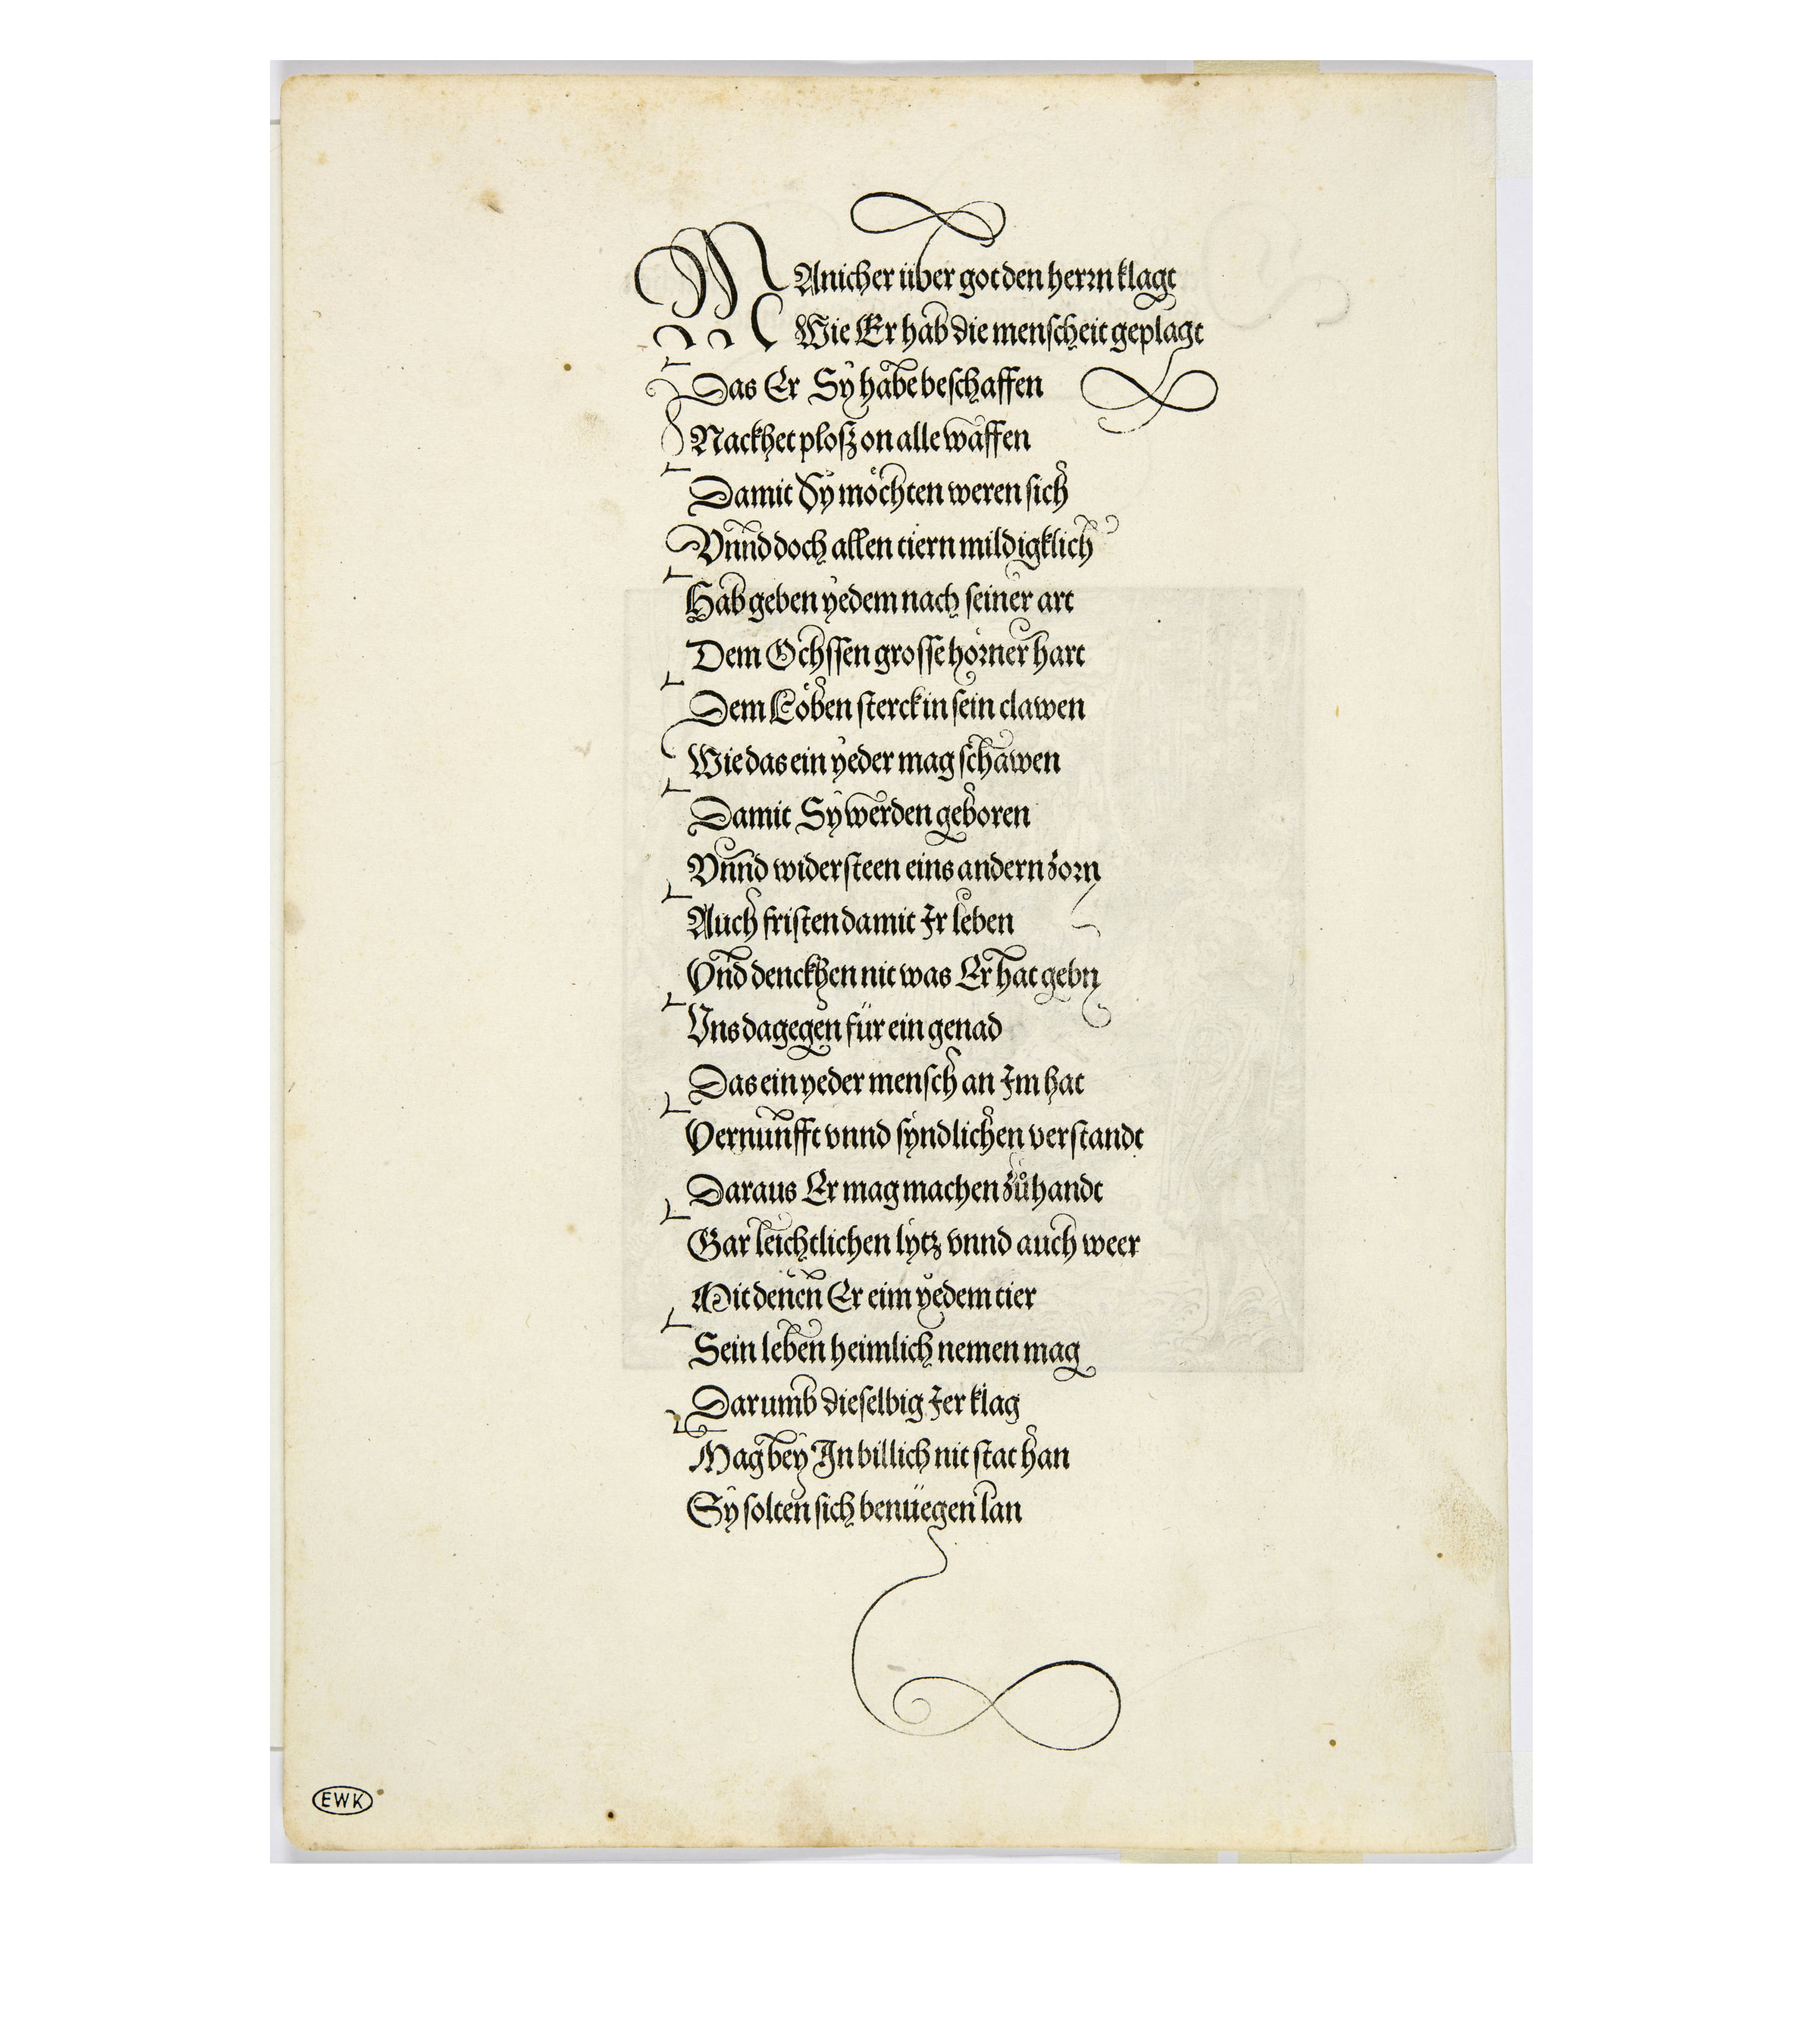 MAnicher über got den herrn klagt
Wie Er hab die menscheit geplagt
Das Er Sy habe beschaffen
Nackhet plosz on alle waffen
Damit Sy möchten weren sich
Vnnd doch allen tiern mildigklich
Hab geben yedem nach seiner art
Dem Ochssen grosse hörner hart
Dem Löben sterck in sein clawen
Wie das ein yeder mag schawen
Damit Sy werden geboren
Vnnd widersteen eins andern zorn
Auch fristen damit Ir leben
Vnd denckhen nit was Er hat gebn
Vns dagegen für ein genad
Das ein yeder mensch an Im hat
Vernunfft vnnd syndlichen verstandt
Daraus Er mag machen zůhandt
Gar leichtlichen lytz vnnd auch weer
Mit denen Er eim yedem tier
Sein leben heimlich nemen mag
Darumb dieselbig Ier klag
Mag bey In billich nit stat han
Sy solten sich benüegen lan
EWK